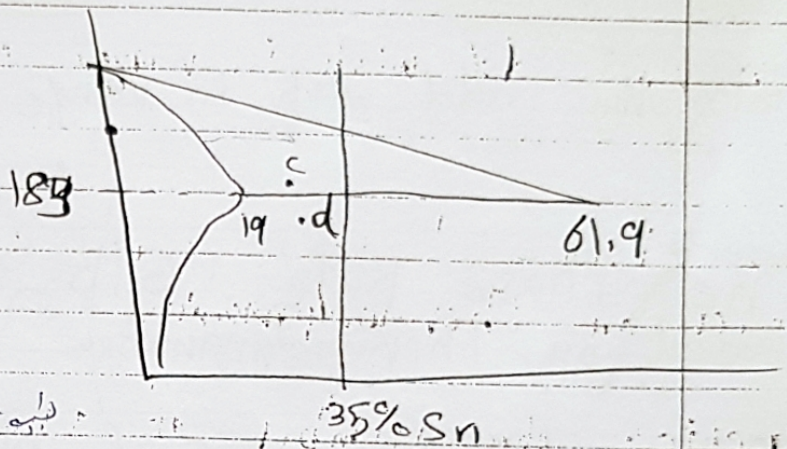 c
183
19 .d
61.9
35% Sn